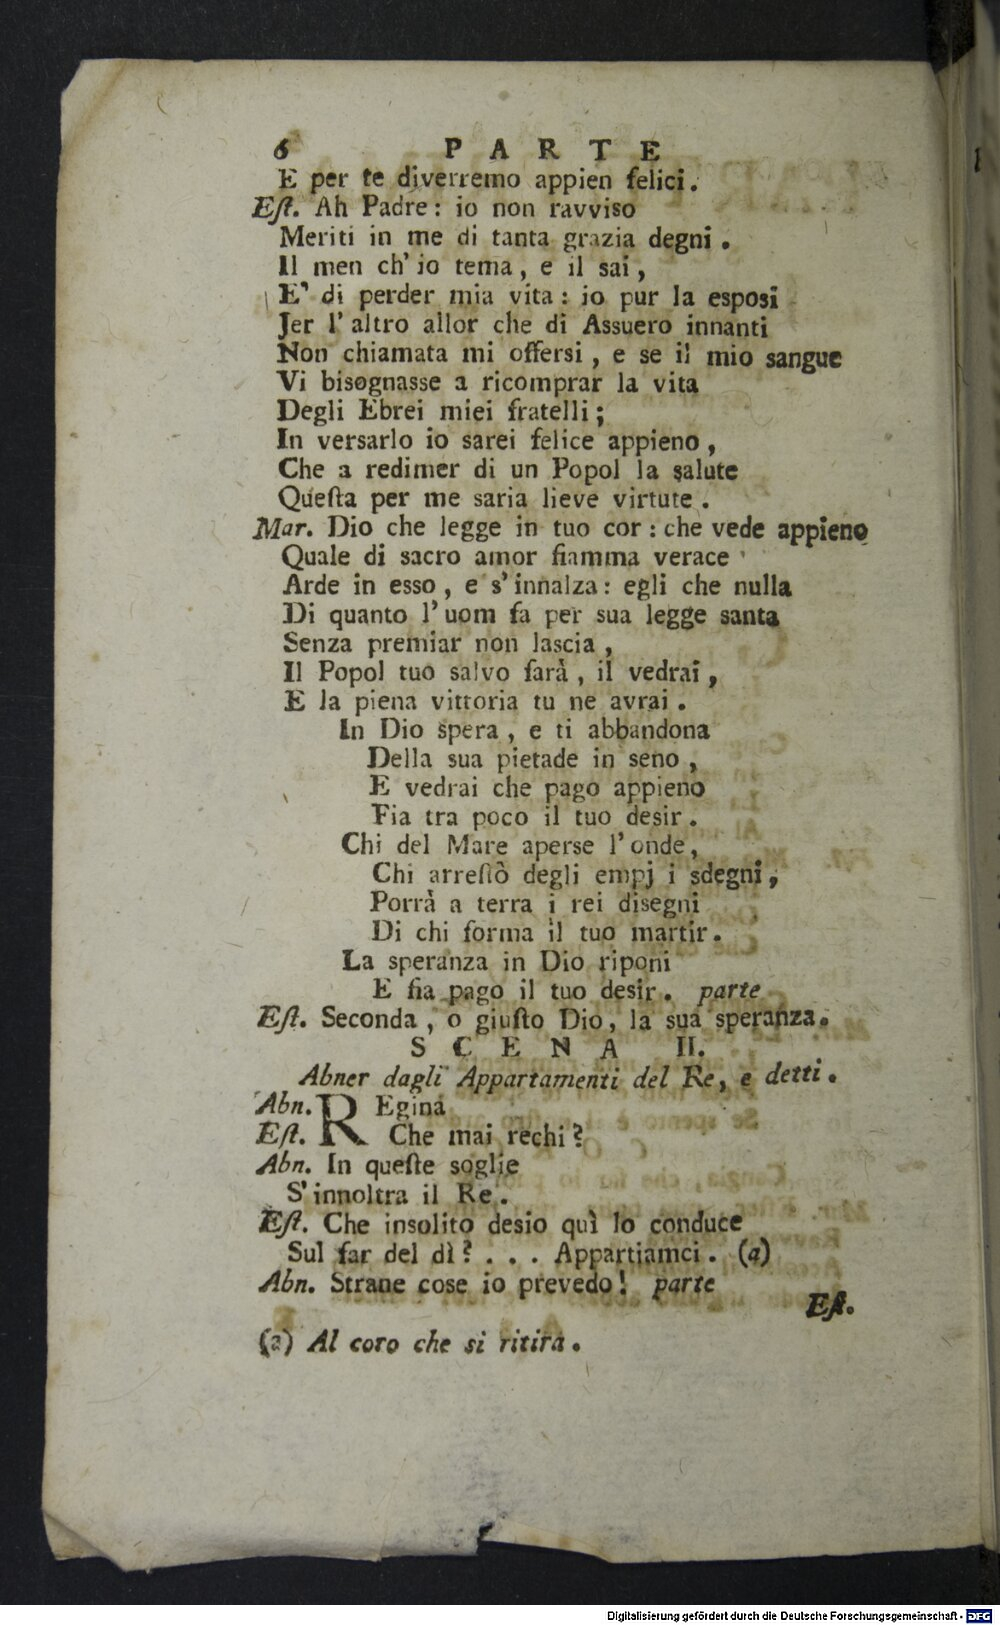 6 PARTE
E per te diverremo appien felici.
Eſt. Ah Padre: io non ravviso
Meriti in me di tanta grazia degni.
Il men ch'io tema, e il sai,
E' di perder mia vita: io pur la esposi
Jer l'altro allor che di Assuero innanti
Non chiamata mi offersi, e se il mio sangue
Vi bisognasse a ricomprar la vita
Degli Ebrei miei fratelli;
In versarlo io sarei felice appieno,
Che a redimer di un Popol la salute
Queſta per me saria lieve virtute.
Mar. Dio che legge in tuo cor: che vede appieno
Quale di sacro amor fiamma verace
Arde in esso, e s'innalza: egli che nulla
Di quanto l'uom fa per sua legge santa
Senza premiar non lascia,
Il Popol tuo salvo farà, il vedrai,
E la piena vittoria tu ne avrai.
In Dio spera, e ti abbandona
Della sua pietade in seno,
E vedrai che pago appieno
Fia tra poco il tuo desir.
Chi del Mare aperse l'onde,
Chi arreſtò degli empj i sdegni,
Porrà a terra i rei disegni
Di chi forma il tuo martir.
La speranza in Dio riponi
E fia pago il tuo desir. parte
Eſt. Seconda, o giuſto Dio, la sua speranza.
SCENA II.
Abner dagli Appartamenti del Re, e detti.
Abn. REgina
Eſt. Che mai rechi?
Abn. In queſte soglie
S'innoltra il Re.
Eſt. Che insolito desio quì lo conduce
Sul far del dì? . . . Appartiamci. (a)
Abn. Strane cose io prevedo! parte
Eſt.
(a) Al coro che si ritira.
Digitalisierung gefördert durch die Deutsche Forschungsgemeinschaft - DFG